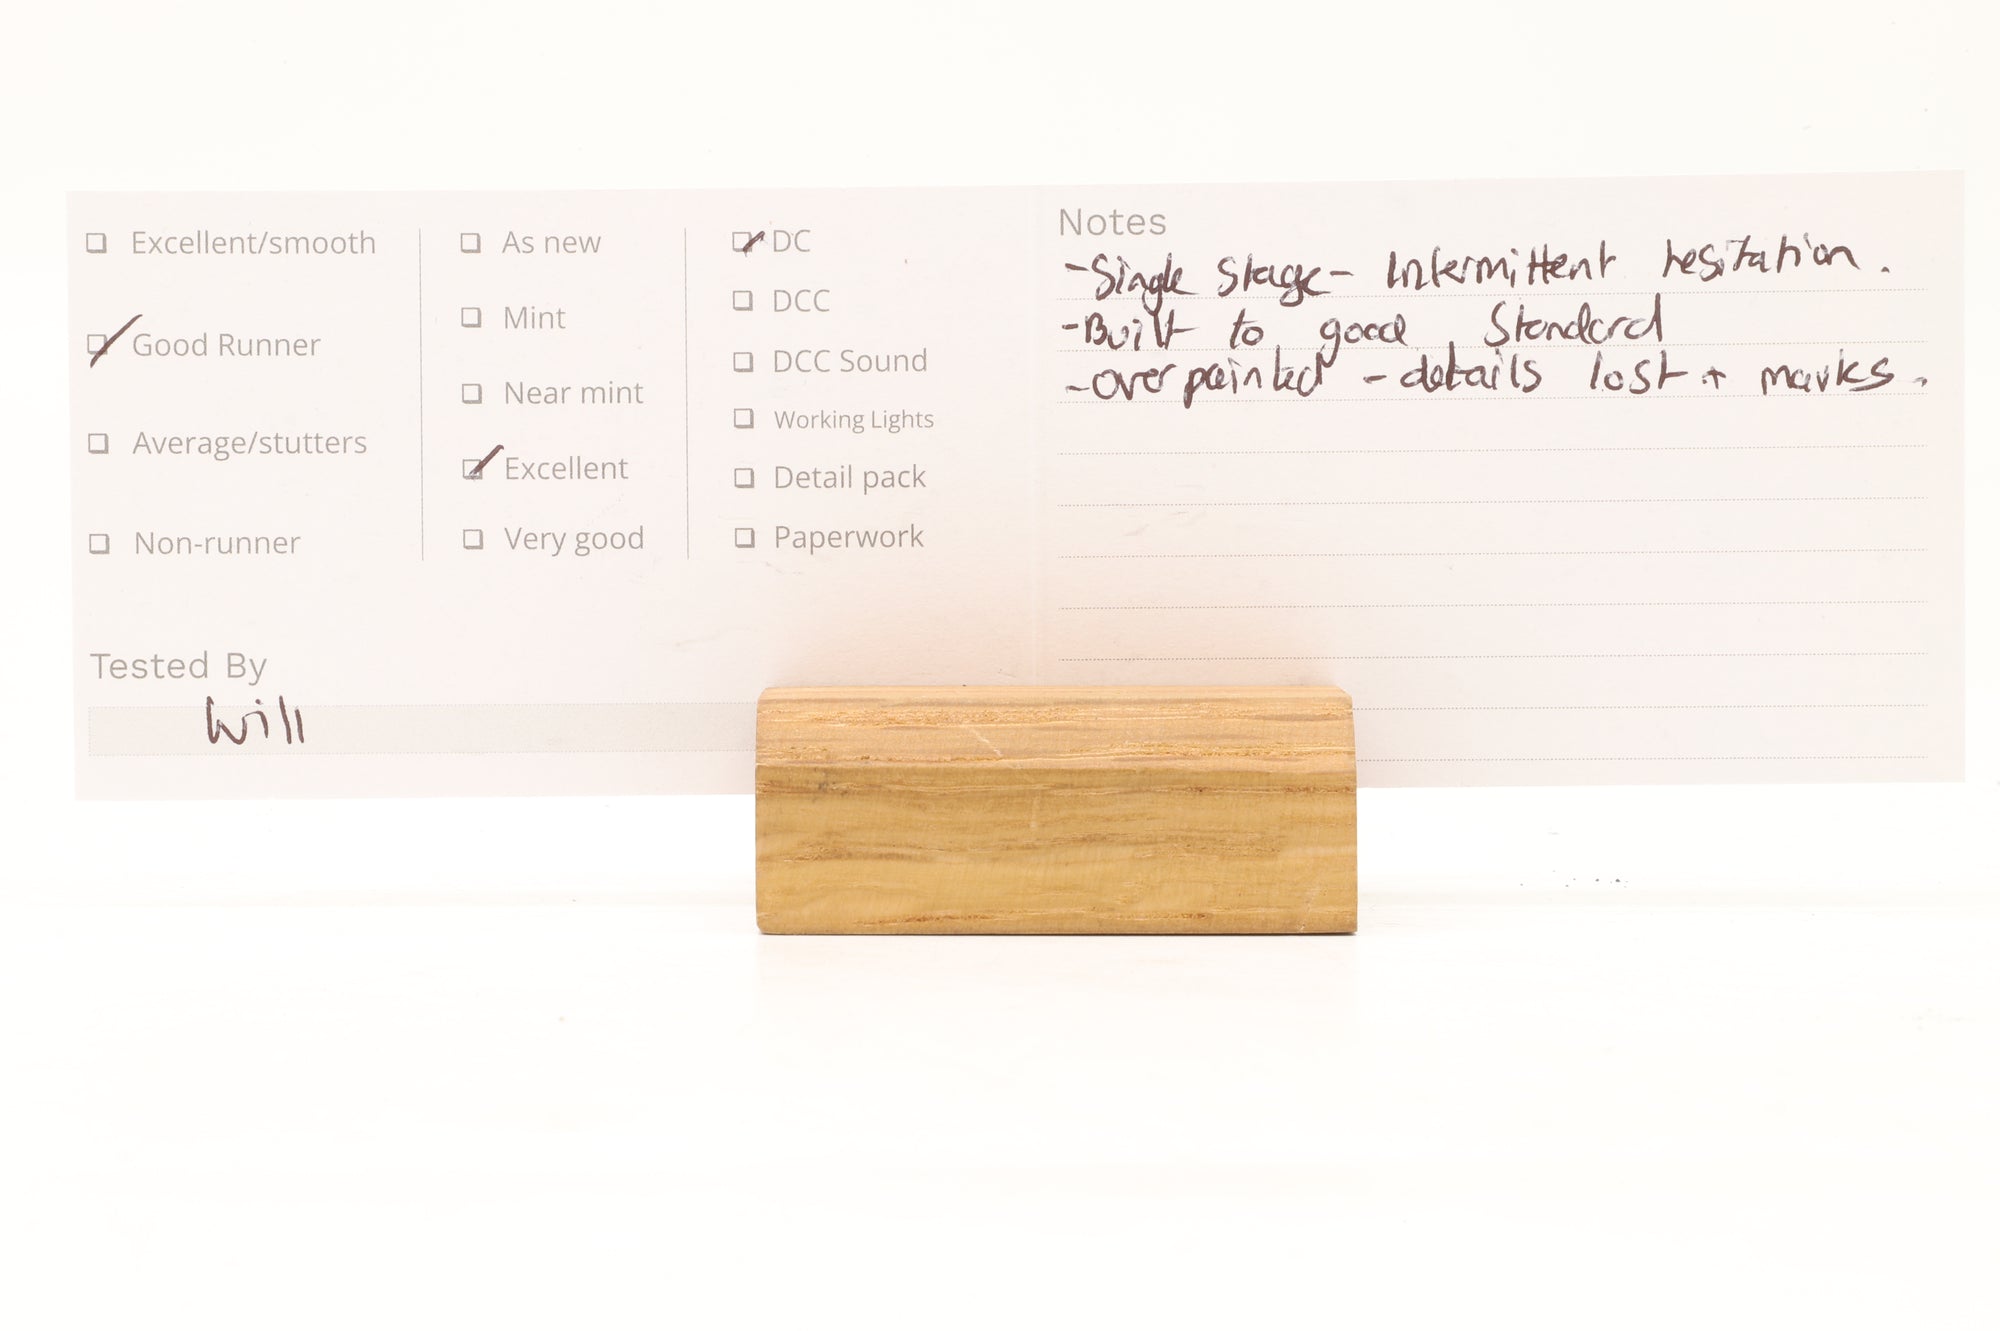 Excellent/smooth
Good Runner
Average/stutters
Non-runner
As new
Mint
Near mint
Excellent
Very good
DC
DCC
DCC Sound
Working Lights
Detail pack
Paperwork
Tested By
Will
Notes
-Single Stage- Intermittent hesitation.
-Built to good Standard
-overpainted - details lost + marks.